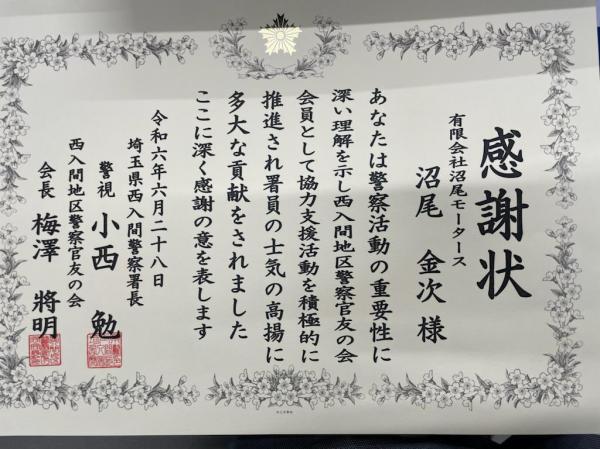 感謝状
有限会社沼尾モータース
沼尾 金次 様
あなたは警察活動の重要性に
深い理解を示し西入間地区警察官友の会
会員として協力支援活動を積極的に
推進され署員の士気の高揚に
多大な貢献をされました
ここに深く感謝の意を表します
令和六年六月二十八日
埼玉県西入間警察署長
警視 小西 勉
西入間地区警察官友の会
会長 梅澤 將明